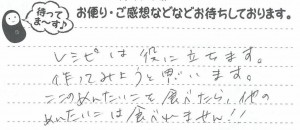 待ってま〜す♪
お便り・ご感想などなどお待ちしております。
レシピは役に立ちます。
作ってみようと思います。
ここのめんたいこを食べたら、他の
めんたいこは食べれません!!